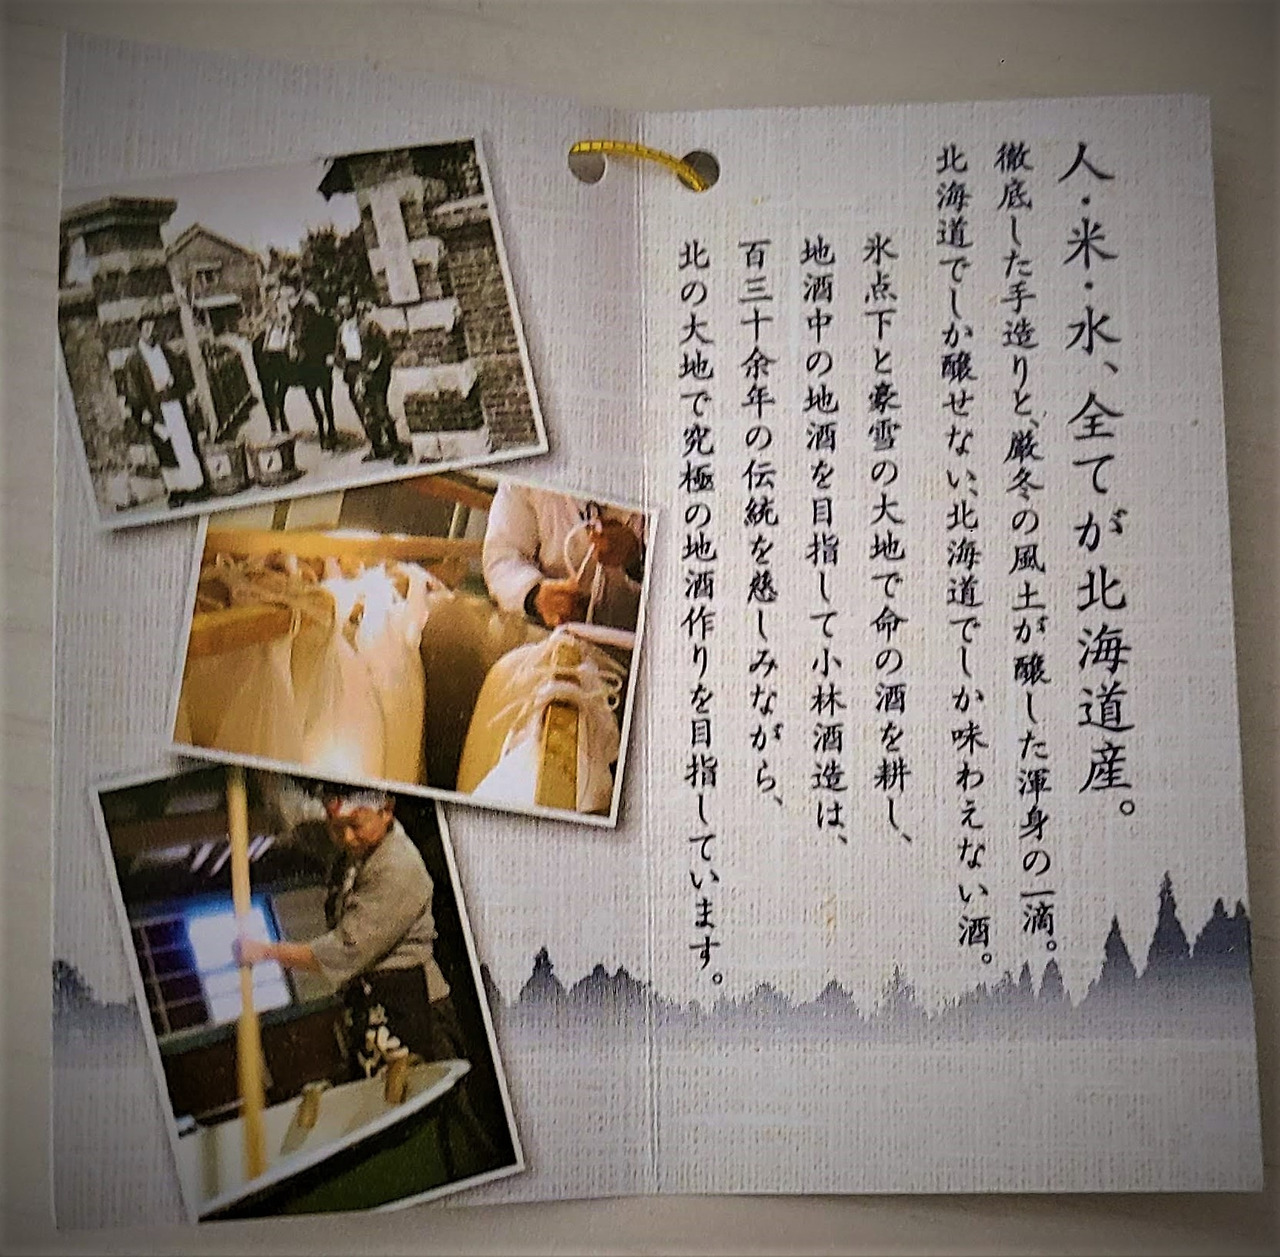 人・米・水、全てが北海道産。
徹底した手造りと、厳冬の風土が醸した渾身の一滴。
北海道でしか醸せない、北海道でしか味わえない酒。
氷点下と豪雪の大地で命の酒を耕し、
地酒中の地酒を目指して小林酒造は、
百三十余年の伝統を慈しみながら、
北の大地で究極の地酒作りを目指しています。